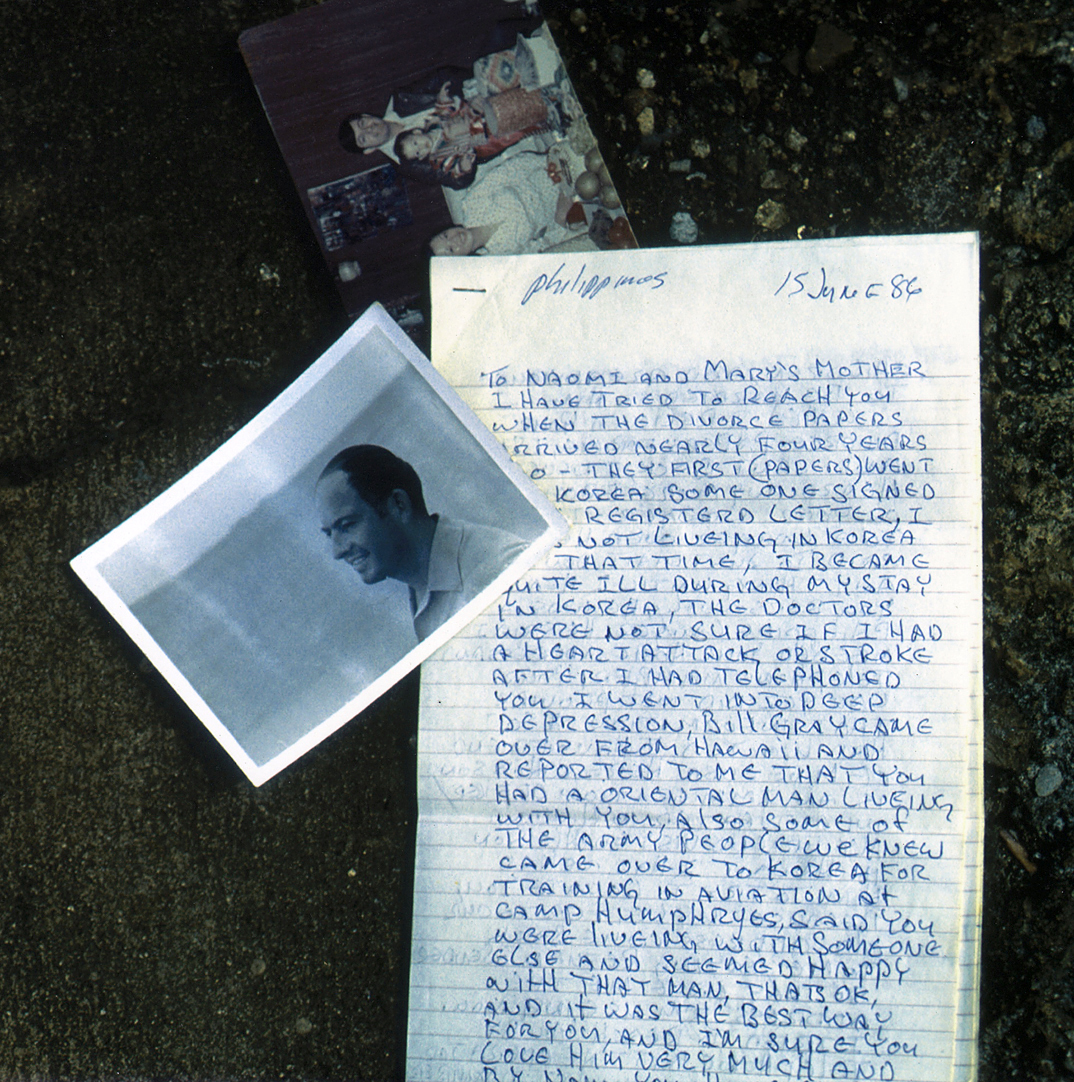 philippines 15 JUNE 86
TO NAOMI AND MARY'S MOTHER
I HAVE TRIED TO REACH YOU
WHEN THE DIVORCE PAPERS
RRIVED NEARLY FOUR YEARS
O - THEY FIRST (PAPERS) WENT
KOREA SOME ONE SIGNED
REGISTERD LETTER, I
S NOT LIVEING IN KOREA
THAT TIME, I BECAME
QUITE ILL DURING MY STAY
IN KOREA, THE DOCTORS
WERE NOT SURE IF I HAD
A HEART ATTACK OR STROKE
AFTER I HAD TELEPHONED
YOU I WENT INTO DEEP
DEPRESSION, Bill GRAY CAME
OVER FROM HAWAii AND
REPORTED TO ME THAT YOU
HAD A ORIENTAL MAN LIVEING
WITH YOU, Also SOME OF
THE ARMY PEOPLE WE KNEW
CAME OVER TO KOREA FOR
TRAINING IN AVIATION At
CAMP HUMPHRYES, SAID YOU
WERE liVEING WITH SOMEONE
ELSE AND SEEMED HAPPY
WITH THAT MAN, THATS OK,
AND IT WAS THE BEST WAY
FOR YOU, AND I'M SURE YOU
LOVE HIM VERY MUCH AND
BY NOW YOU